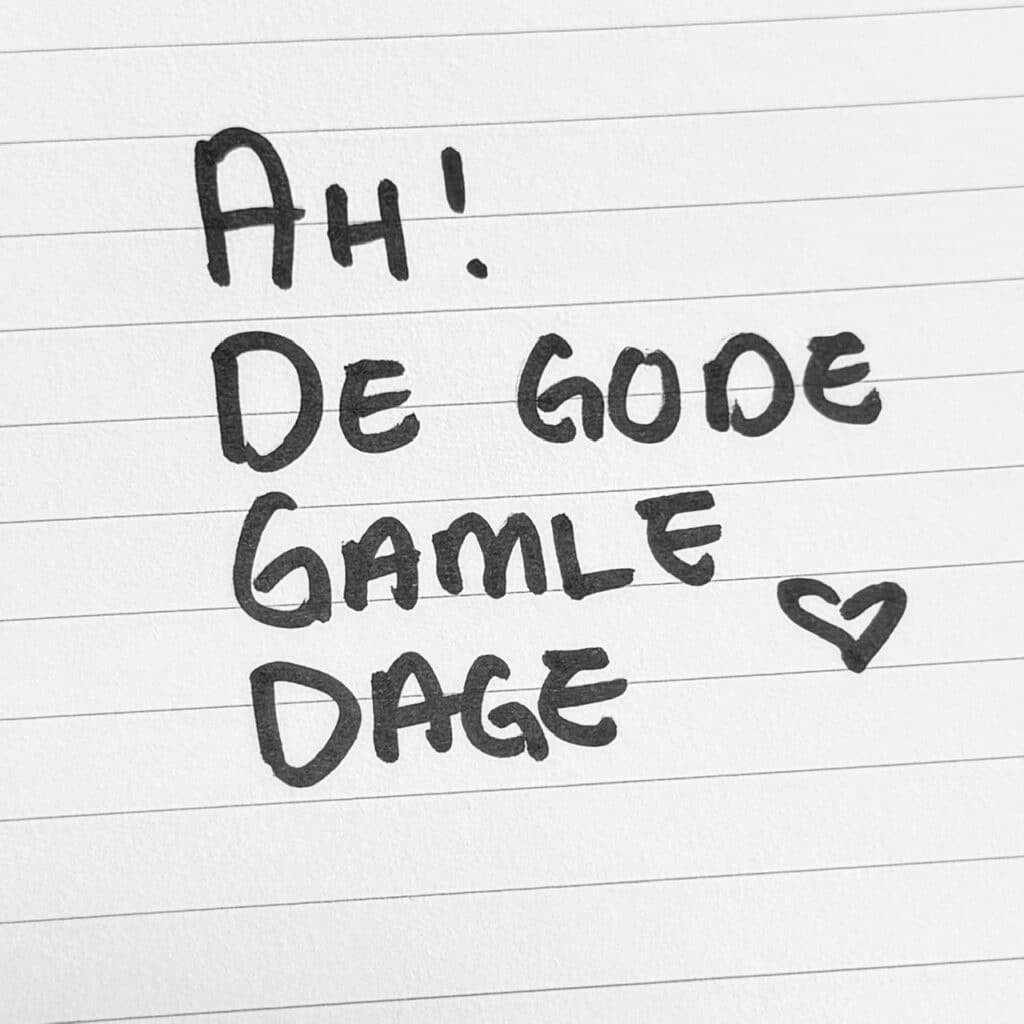 AH!
DE GODE
GAMLE
DAGE ♡